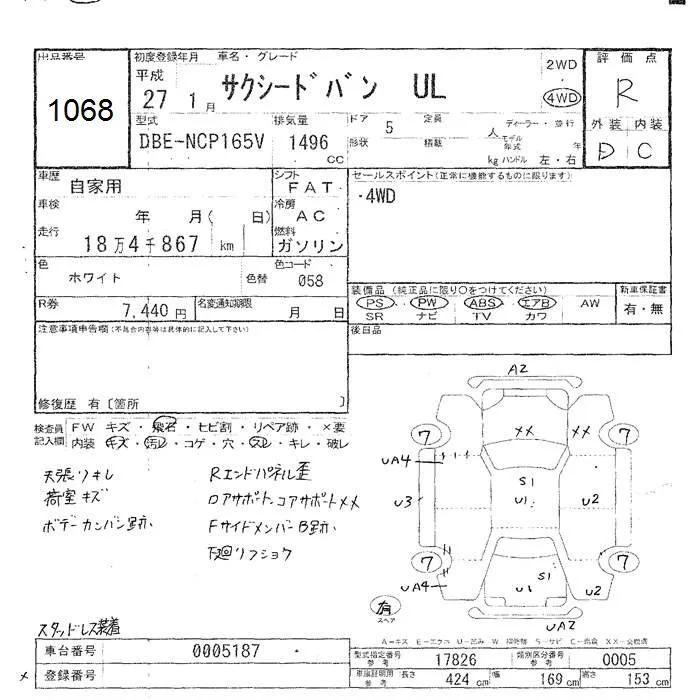 出品番号 初度登録年月 車名・グレード
1068
平成 27 1月 サクシードバン UL 2WD 4WD
評価点 R
型式 排気量 ドア 5 定員 人 ディーラー・並行
DBE-NCP165V 1496 cc 形状 積載 kg モデル年式 年 ハンドル 左・右
外装 内装
D C
車歴 自家用 シフト FAT
セールスポイント(正常に機能するものに限ります)
・4WD
車検 年 月( 日) 冷房 AC
走行 18万4千867 km 燃料 ガソリン
色 ホワイト 色替 色コード 058
装備品 (純正品に限り○をつけてください) 新車保証書
PS PW ABS エアB AW 有・無
SR ナビ TV カワ
R券 7,440円 名変通知期限 月 日
後日品
注意事項申告欄(不具合内容等は具体的に記入して下さい)
修復歴 有〔箇所 〕
検査員記入欄 FW キズ・飛石・ヒビ割・リペア跡・×要
内装 キズ・汚レ・コゲ・穴・スレ・キレ・破レ
天張リキレ
荷室キズ
ボデーカンバン跡
Rエンドパネル歪
ロアサポート、コアサポートXX
FサイドメンバーB跡
下廻リフショウ
A2
7 XX XX 7
UA4 S1
U3 U1 U2
7 7
UA4 S1 U1 U2
有 スペア
UA2
スタッドレス装着
A-キズ E-エクボ U-凹み W S-サビ C-腐食 XX-交換済
車台番号 0005187
型式指定番号 参考 17826 類別区分番号 参考 0005
登録番号
車庫証明用 参考 長さ 424 cm 幅 169 cm 高さ 153 cm